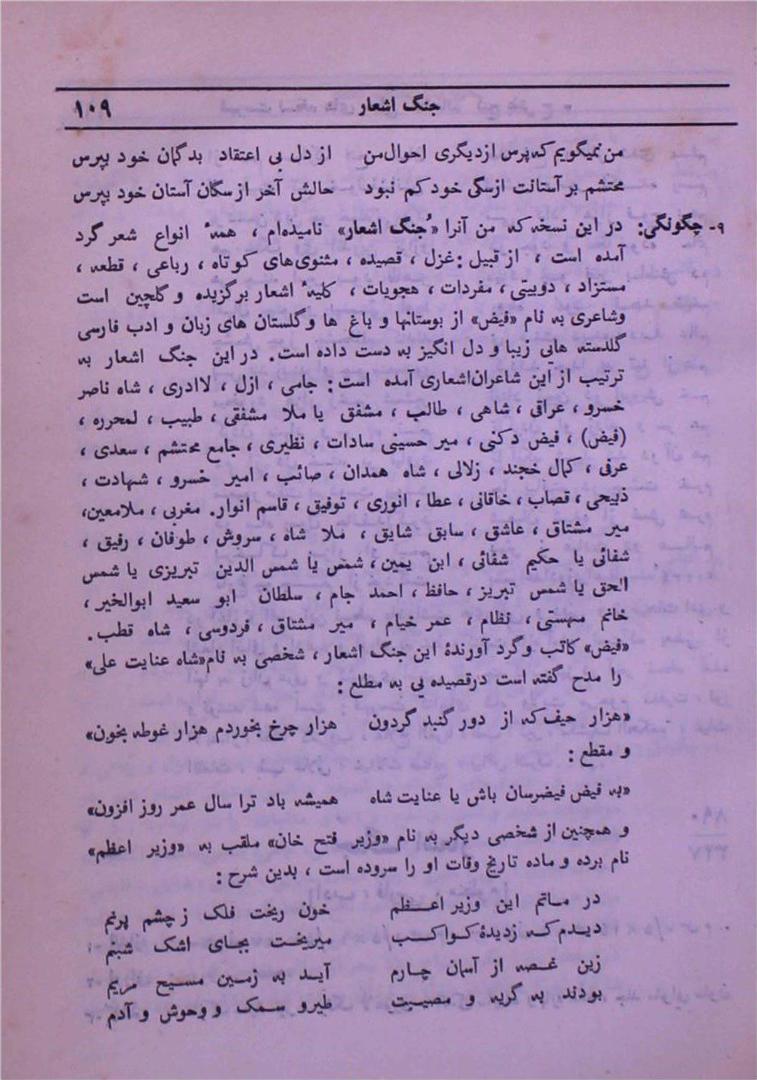 جنگ اشعار ۱۰۹
من نمیگویم که پرس از دیگری احوال من از دل بی اعتقاد بدگمان خود بپرس
محتشم بر آستانت از سگی خود کم نبود حالش آخر از سگان آستان خود بپرس
۹- چگونگی: در این نسخه که من آنرا «جُنگ اشعار» نامیده‌ام ، همهٔ انواع شعر گرد
آمده است ، از قبیل : غزل ، قصیده ، مثنوی‌های کوتاه ، رباعی ، قطعه ،
مستزاد ، دوبیتی ، مفردات ، هجویات ، کلیهٔ اشعار برگزیده و گلچین است
وشاعری به نام «فیض» از بوستانها و باغ ها وگلستان های زبان و ادب فارسی
گلدسته هایی زیبا و دل انگیز به دست داده است. در این جنگ اشعار به
ترتیب از این شاعران اشعاری آمده است : جامی ، ازل ، لاادری ، شاه ناصر
خسرو ، عراقی ، شاهی ، طالب ، مشفق یا ملا مشفقی ، طبیب ، لمحرره ،
(فیض) ، فیض دکنی ، میر حسینی سادات ، نظیری ، جامع محتشم ، سعدی ،
عرفی ، کمال خجند ، زلالی ، شاه همدان ، صائب ، امیر خسرو ، شهادت ،
ذبیحی ، قصاب ، خاقانی ، عطا ، انوری ، توفیق ، قاسم انوار. مغربی ، ملامعین،
میر مشتاق ، عاشق ، سابق شایق ، ملا شاه ، سروش ، طوفان ، رفیق ،
شفائی یا حکیم شفائی ، ابن یمین ، شمس یا شمس الدین تبریزی یا شمس
الحق یا شمس تبریز ، حافظ ، احمد جام ، سلطان ابو سعید ابوالخیر ،
خانم مهستی ، نظام ، عمر خیام ، میر مشتاق ، فردوسی ، شاه قطب.
«فیض» کاتب وگرد آورندهٔ این جنگ اشعار ، شخصی به نام «شاه عنایت علی»
را مدح گفته است درقصیده یی به مطلع :
«هزار حیف که از دور گنبد گردون هزار چرخ بخوردم هزار غوطه بخون»
و مقطع :
«به فیض فیضرسان باش یا عنایت شاه همیشه باد ترا سال عمر روز افزون»
و همچنین از شخصی دیگر به نام «وزیر فتح خان» ملقب به «وزیر اعظم»
نام برده و ماده تاریخ وفات او را سروده است ، بدین شرح :
در ماتم این وزیر اعـظم خون ریخت فلک ز چشم پرنم
دیـدم کـه زدیدهٔ کـواکـب میریخـت بجای اشک شبنم
زین غـصه از آسمان چـارم آیـد به زمـین مسیح مریم
بودند به گریه و مصیبت طیرو سـمک و وحوش و آدم